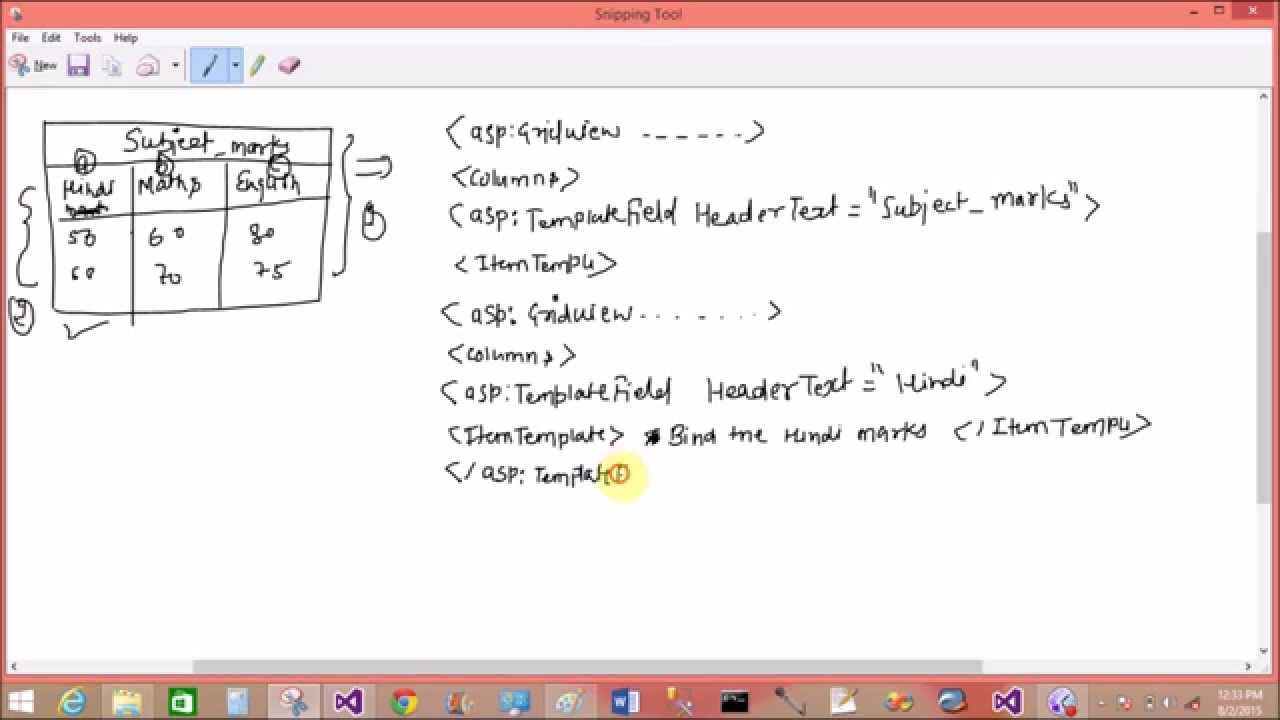 Snipping Tool
File Edit Tools Help
New
Subject_marks
a b c
Hindi Maths English
50 60 80
60 70 75
1
2
<asp:Gridview ------>
<columns>
<asp:TemplateField HeaderText="Subject_marks">
<ItemTempl>
<asp:Gridview........>
<columns>
<asp:TemplateField HeaderText="Hindi">
<ItemTemplate> Bind the Hindi marks </ItemTempl>
</asp:Templat
12:33 PM
8/2/2015